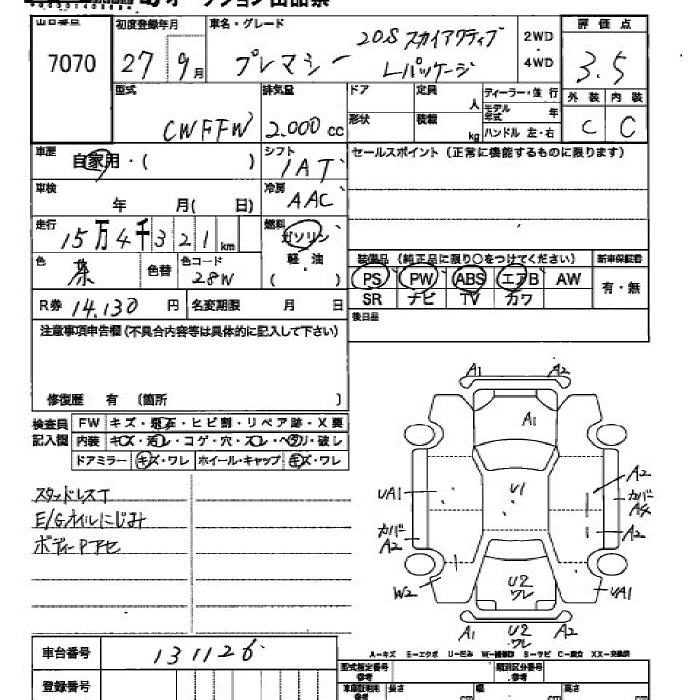 オークション出品票
出品番号 初度登録年月 車名・グレード 評価点
7070 27 9月 プレマシー 20S スカイアクティブ Lパッケージ 2WD・4WD 3.5
型式 CWFFW 排気量 2.000cc ドア 定員 人 ディーラー・並行 外装 内装
形状 積載 kg モデル年式 年 ハンドル 左・右 C C
車歴 自家用・( ) シフト 1AT セールスポイント (正常に機能するものに限ります)
車検 年 月( 日) 冷房 AAC
走行 15万4千321km 燃料 ガソリン
軽・油
( )
色 茶 色替 色コード 28W
装備品 (純正品に限り○をつけてください) 新車保証書
PS PW ABS エアB AW 有・無
SR ナビ TV カワ
R券 14.130円 名変期限 月 日 後日品
注意事項申告欄(不具合内容等は具体的に記入して下さい)
修復歴 有 (箇所 )
検査員記入欄 FW キズ・飛石・ヒビ割・リペア跡・X要
内装 キズ・汚レ・コゲ・穴・スレ・ヘタリ・破レ
ドアミラー キズ・ワレ ホイール・キャップ キズ・ワレ
スタッドレスT
E/Gオイルにじみ
ボディーPアセ
A1 A2
A1
UA1 U1 A2
カバー A4
カバー A2 A2
W2 U2 ワレ UA1
A1 U2 ワレ A2
A-キズ E-エクボ U-凹み W-補修跡 S-サビ C-腐食 XX-交換済
車台番号 131126
型式指定番号 参考 類別区分番号 参考
登録番号
車庫証明用 参考 長さ cm 幅 cm 高さ cm